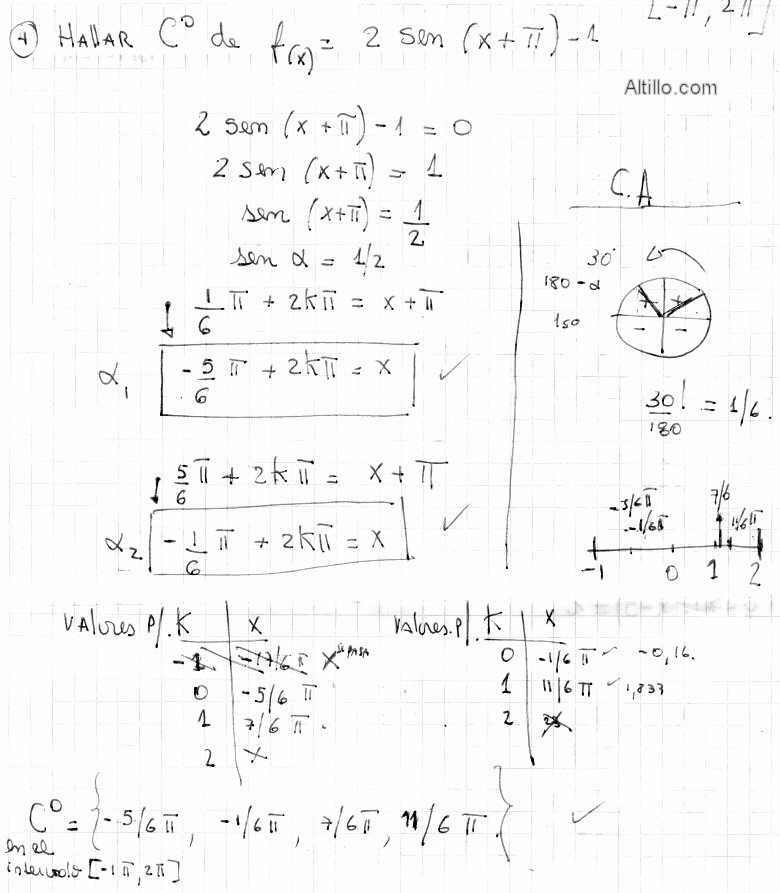 [-π, 2π]
4) HALLAR C⁰ de f(x) = 2 sen (x + π) - 1
Altillo.com
2 sen (x + π) - 1 = 0
2 sen (x + π) = 1
sen (x+π) = 1/2
sen α = 1/2
↓ 1/6 π + 2kπ = x + π
α₁ -5/6 π + 2kπ = x ✓
↓ 5/6 π + 2kπ = x + π
α₂ -1/6 π + 2kπ = x ✓
C.A
30°
180 - α
150
+ +
- -
30/180 = 1/6.
-5/6π -1/6π 7/6 11/6π
-1 0 1 2
Valores p/. K X
-1 -17/6 π X se pasa
0 -5/6 π
1 7/6 π
2 X
Valores. p/. K X
0 -1/6 π ✓ -0,16.
1 11/6 π ✓ 1,833
2
C⁰ = { -5/6 π, -1/6 π, 7/6 π, 11/6 π } ✓
en el
intervalo [-1π, 2π]